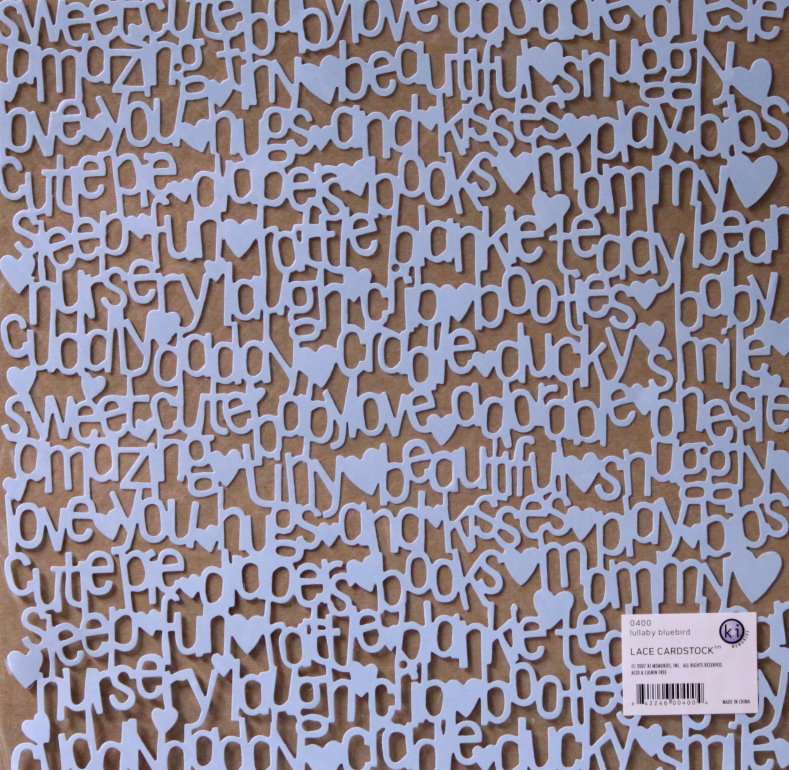 sweet cute baby love adorable onesie
amazing tiny beautiful snuggly
love you hugs and kisses play bibs
cutie pie diapers books mommy
sleep fun rattle blankie teddy bear
nursery laugh crib booties baby
cuddly daddy cradle ducky smile
sweet cute baby love adorable onesie
amazing tiny beautiful snuggly
love you hugs and kisses play bibs
cutie pie diapers books mommy
sleep fun rattle blankie
nursery laugh crib
cuddly daddy cradle ducky smile
0400
lullaby bluebird
ki MEMORIES
LACE CARDSTOCK™
© 2007 KI MEMORIES, INC. ALL RIGHTS RESERVED.
ACID & LIGNIN FREE
42246 00400
MADE IN CHINA